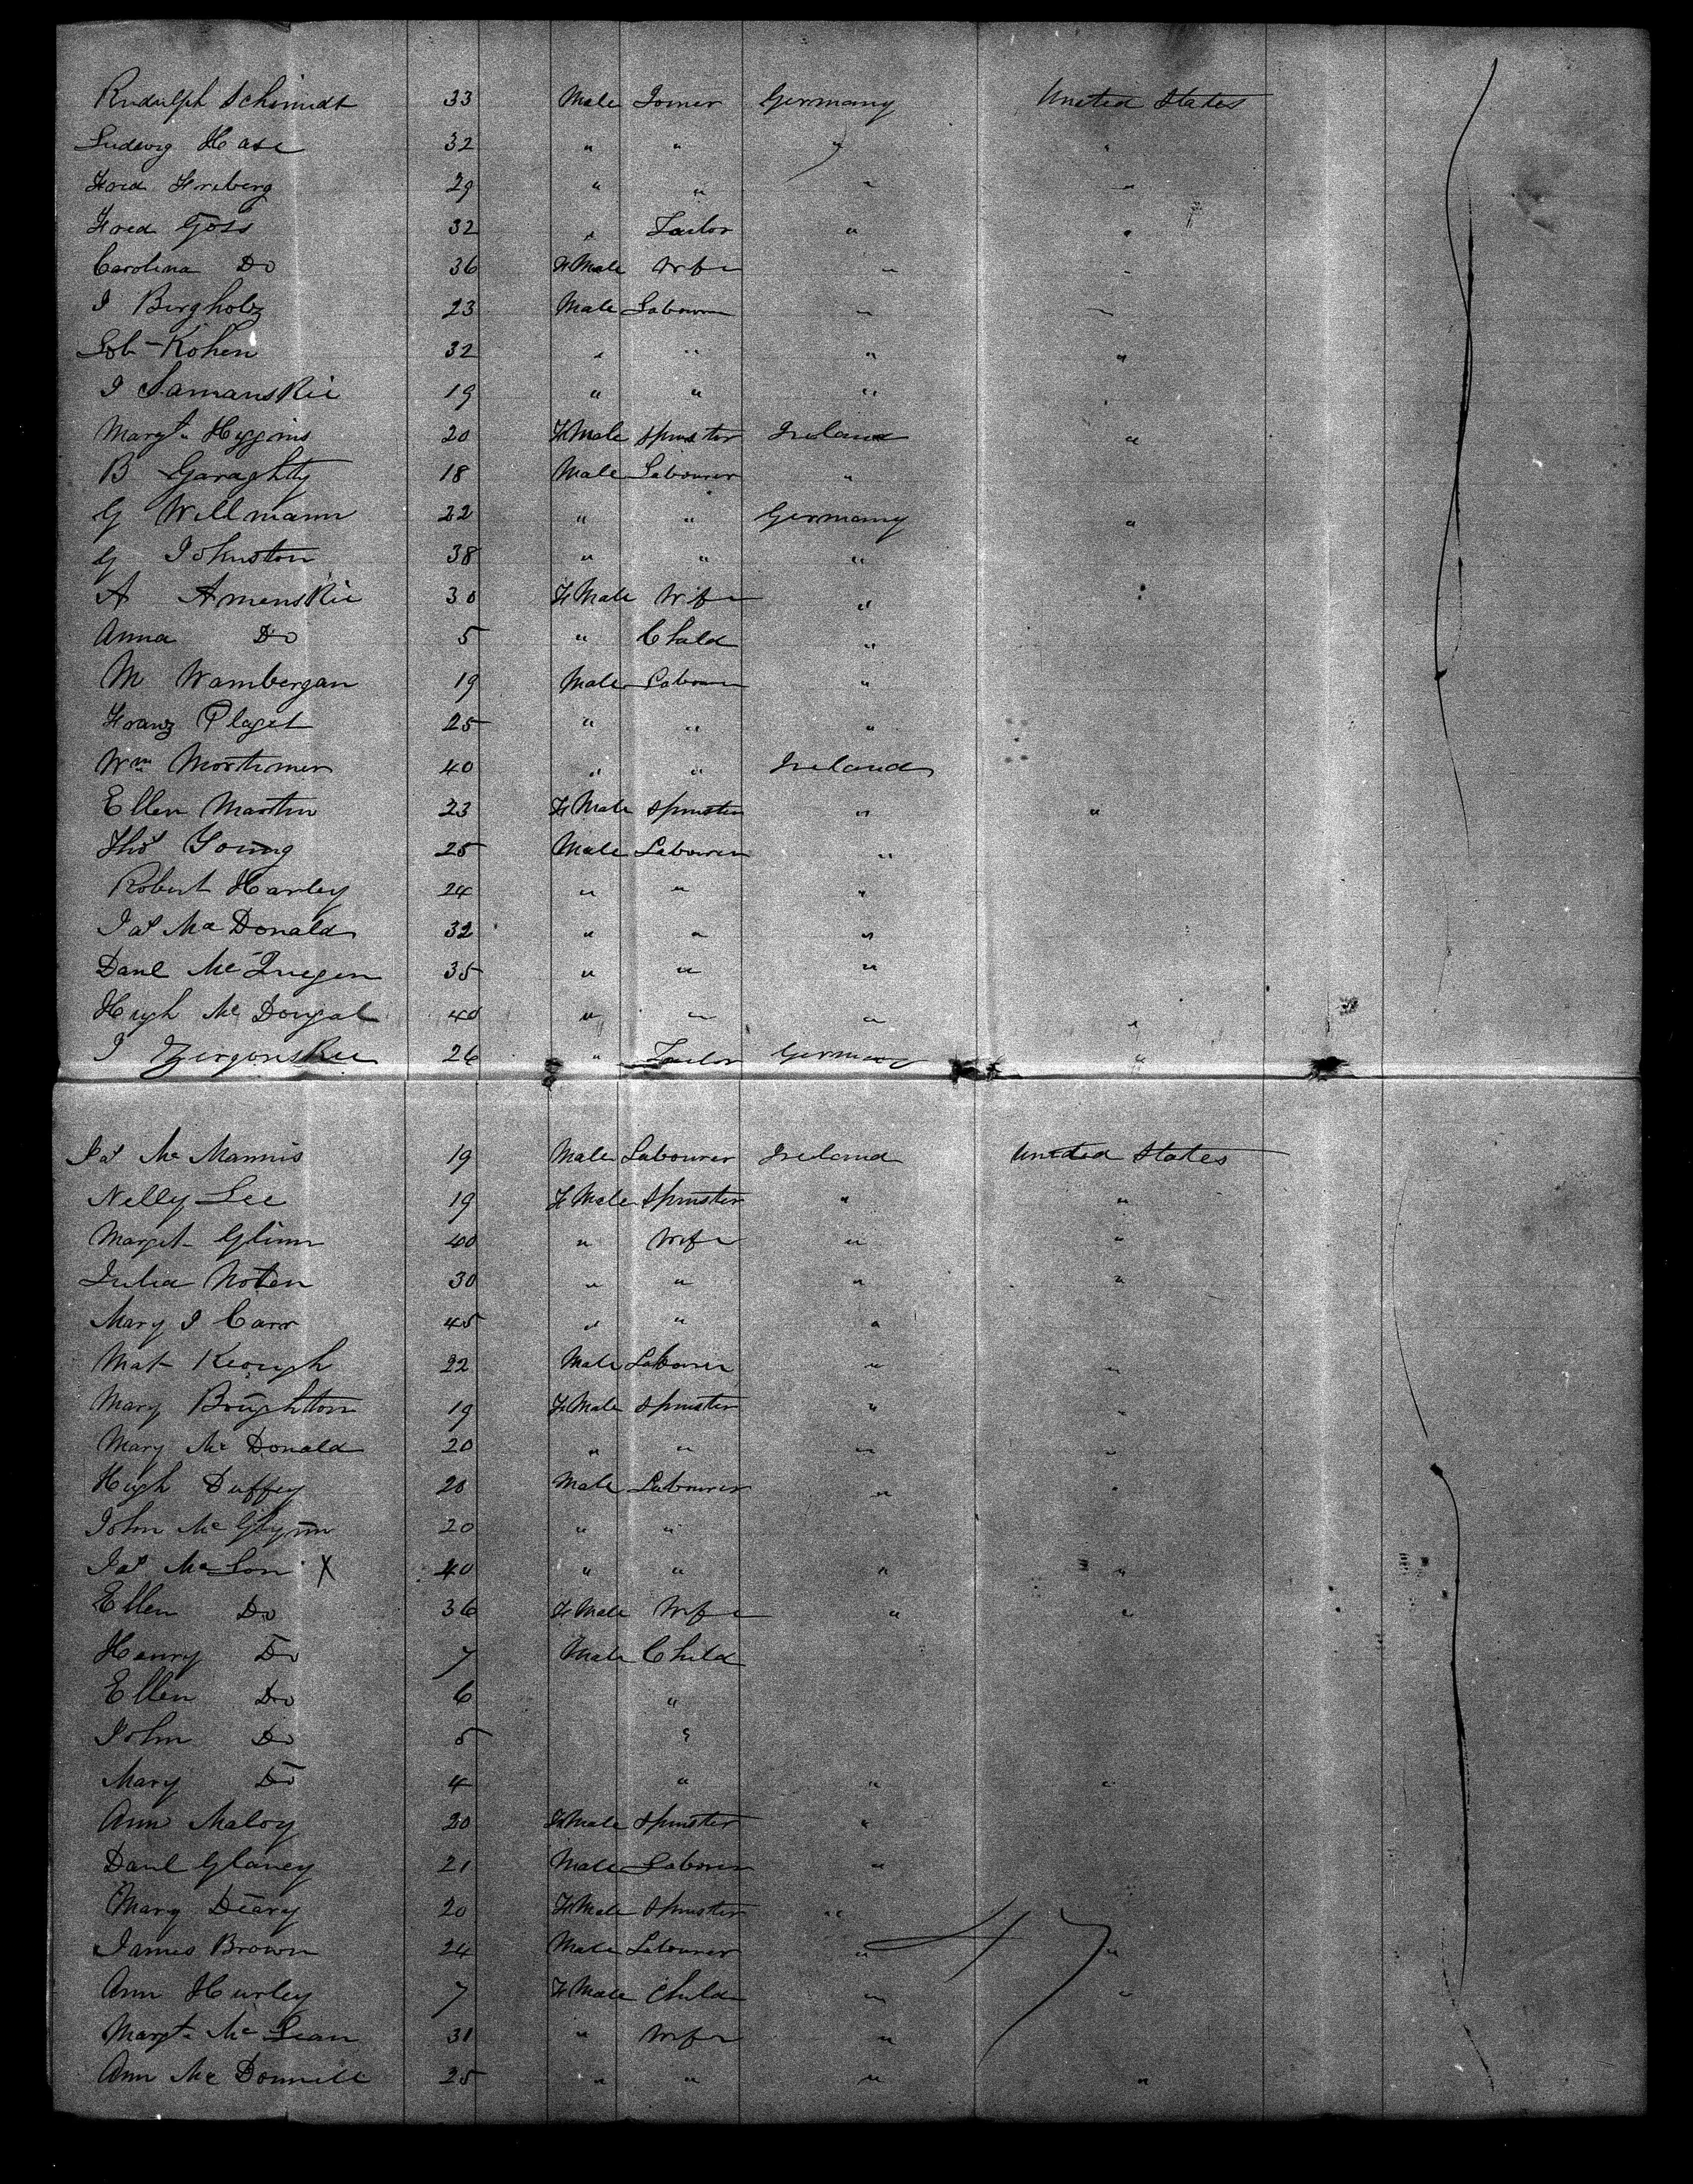 Rudulph Schimidt 33 Male Joiner Germany United States
Ludewig Hase 32 " " " "
Fred Freberg 29 " " " "
Fred Goss 32 " Tailor " "
Carolina Do 36 FMale Wife " "
I Bergholz 23 Male Labourer " "
Lob Kohen 32 " " " "
I Samanskie 19 " " " "
Margt Higgins 20 FMale Spinster Ireland "
B Garaghty 18 Male Labourer "
G Willmann 22 " " Germany "
G Johnston 38 " " "
A Amenskie 30 FMale Wife " "
Anna Do 5 " Child "
M Wambergan 19 Male Labourer "
Franz Plaget 25 " " "
Wm Mortimer 40 " " Ireland
Ellen Martin 23 FMale Spinster " "
Thos Young 25 Male Labourer "
Robert Harley 24 " " "
Jas Mc Donald 32 " " "
Danl Mc Quegen 35 " " "
Hugh Mc Dougal 40 " " " "
I 26 " Tailor Germany "
Jas Mc Mannis 19 Male Labourer Ireland United States
Nelly Lee 19 FMale Spinster " "
Margt Glinn 40 " Wife " "
Julia Noten 30 " " " "
Mary J Carr 45 " " "
Mat Keough 22 Male Labourer " "
Mary Boughton 19 FMale Spinster " "
Mary Mc Donald 20 " " " "
Hugh Duffey 20 Male Labourer " "
John Mc Glynn 20 " "
Jas McLon X 40 " " " "
Ellen Do 36 FMale Wife " "
Henry Do 7 Male Child
Ellen Do 6 "
John Do 5 "
Mary Do 4 " " "
Ann Maloy 20 FMale Spinster "
Danl Glancy 21 Male Labourer "
Mary Deary 20 FMale Spinster "
James Brown 24 Male Labourer " 47 "
Ann Hurley 7 FMale Child " "
Margt Mc Lean 31 " Wife "
Ann Mc Donnell 25 " " " "